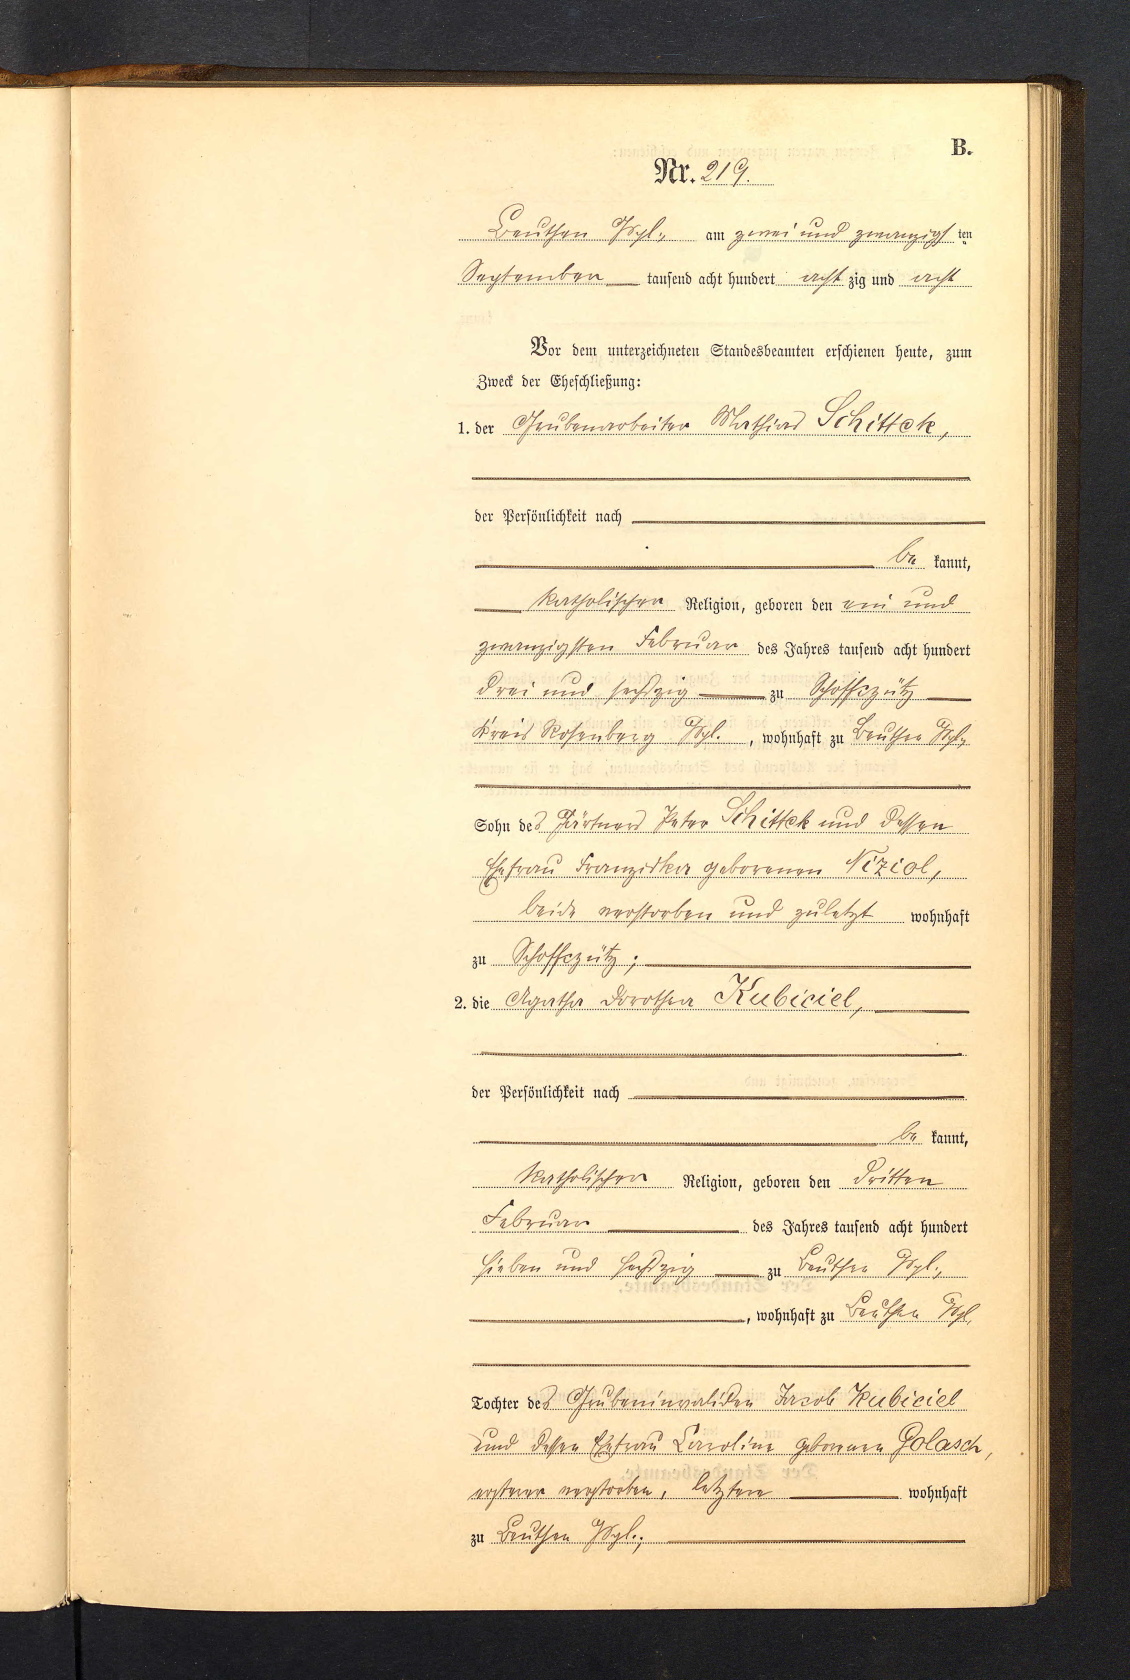 B.
Nr. 219.
Beuthen O/Schl., am zwei und zwanzigsten
September tausend acht hundert acht zig und acht
Vor dem unterzeichneten Standesbeamten erschienen heute, zum
Zweck der Eheschließung:
1. der Grubenarbeiter Mathias Schittek,
der Persönlichkeit nach
be kannt,
katholischer Religion, geboren den ein und
zwanzigsten Februar des Jahres tausend acht hundert
drei und sechszig zu Schoffczütz
Kreis Rosenberg O/Schl., wohnhaft zu Beuthen O/Schl.
Sohn des Gärtners Peter Schittek und dessen
Ehefrau Franziska geborenen Niziol,
beide verstorben und zuletzt wohnhaft
zu Schoffczütz;
2. die Agatha Dorothea Kubiciel,
der Persönlichkeit nach
be kannt,
katholischer Religion, geboren den dritten
Februar des Jahres tausend acht hundert
sieben und sechszig zu Beuthen O/Schl.,
, wohnhaft zu Beuthen O/Schl.
Tochter des Grubeninvaliden Jacob Kubiciel
und dessen Ehefrau Caroline geborenen Golasch,
ersterer verstorben, letztere wohnhaft
zu Beuthen O/Schl.;